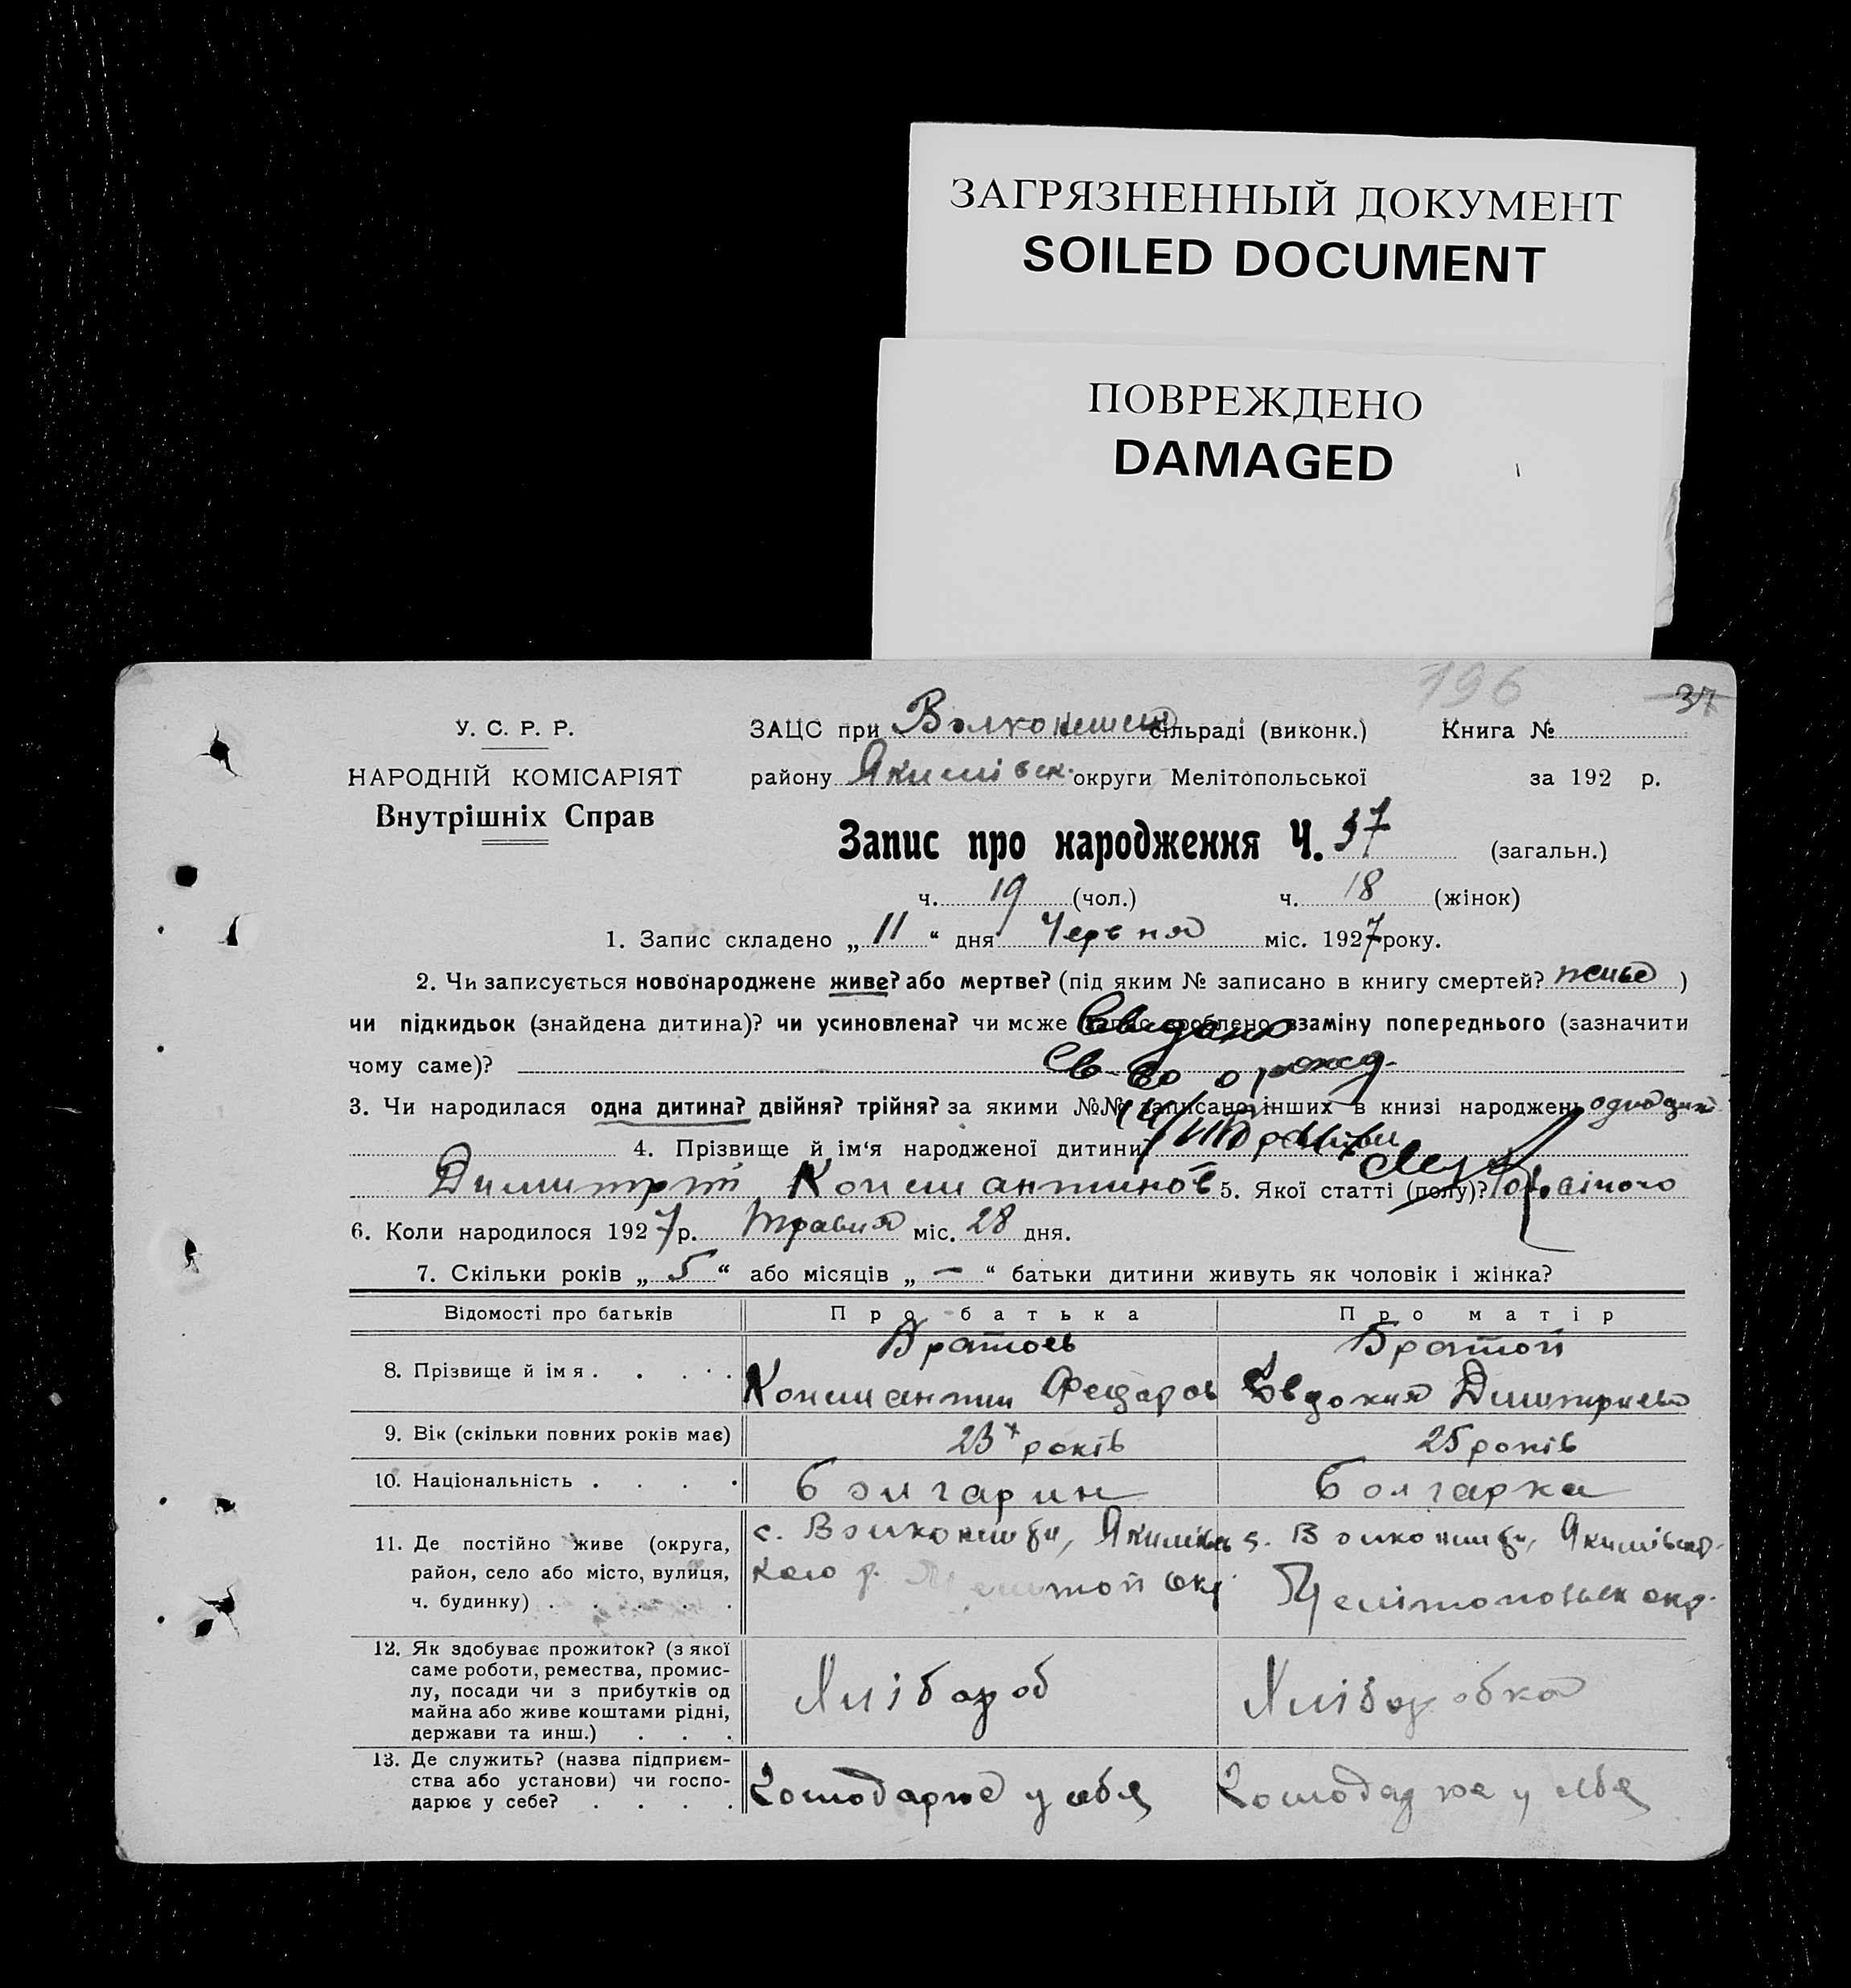 ЗАГРЯЗНЕННЫЙ ДОКУМЕНТ
SOILED DOCUMENT
ПОВРЕЖДЕНО
DAMAGED
196 37
У. С. Р. Р.
НАРОДНІЙ КОМІСАРІЯТ
Внутрішніх Справ
ЗАЦС при сільраді (виконк.) Книга №
району Якимівск. округи Мелітопольської за 192 р.
Запис про народження Ч. 37 (загальн.)
ч. 19 (чол.) ч. 18 (жінок)
1. Запис складено „ 11 “ дня Червня міс. 1927 року.
2. Чи записується новонароджене живе? або мертве? (під яким № записано в книгу смертей? живе )
чи підкидьок (знайдена дитина)? чи усиновлена? чи може запис зроблено взаміну попереднього (зазначити
чому саме)?
Св-во о рожд.
3. Чи народилася одна дитина? двійня? трійня? за якими №№ записано інших в книзі народжень
4. Прізвище й ім‘я народженої дитини?
Димитрій Констянтинов 5. Якої статті (полу)?
6. Коли народилося 1927 р. травня міс. 28 дня.
7. Скільки років „ 5 “ або місяців „ — “ батьки дитини живуть як чоловік і жінка?
Відомості про батьків Про батька Про матір
8. Прізвище й імя . . . . Братовь Констянтин Федаров Братой Евдокия Димитриева
9. Вік (скільки повних років має) 23 років 25 років
10. Національність . . . . болгарин болгарка
11. Де постійно живе (округа,
район, село або місто, вулиця,
ч. будинку) . . . . .
12. Як здобуває прожиток? (з якої
саме роботи, ремества, промис-
лу, посади чи з прибутків од
майна або живе коштами рідні,
держави та инш.) . . .
Хлібороб Хліборобка
13. Де служить? (назва підприєм-
ства або установи) чи госпо-
дарює у себе? . . . .
Господарює у себя Господарює у себя